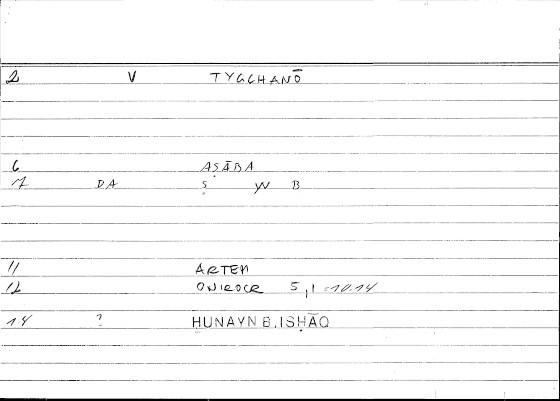 2 V TYGCHANŌ
6 AṢĀBA
7 DA Ṣ YN B
11 ARTEM
12 ONIROCR 5,1 = 10.14
14 ? ḤUNAYN B. ISḤĀQ